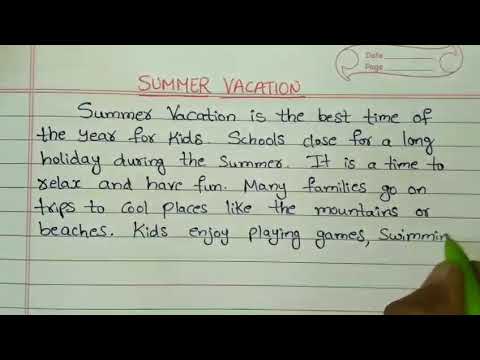 Date
Page
SUMMER VACATION
Summer Vacation is the best time of
the year for kids. Schools close for a long
holiday during the summer. It is a time to
relax and have fun. Many families go on
trips to cool places like the mountains or
beaches. Kids enjoy playing games, Swimmin